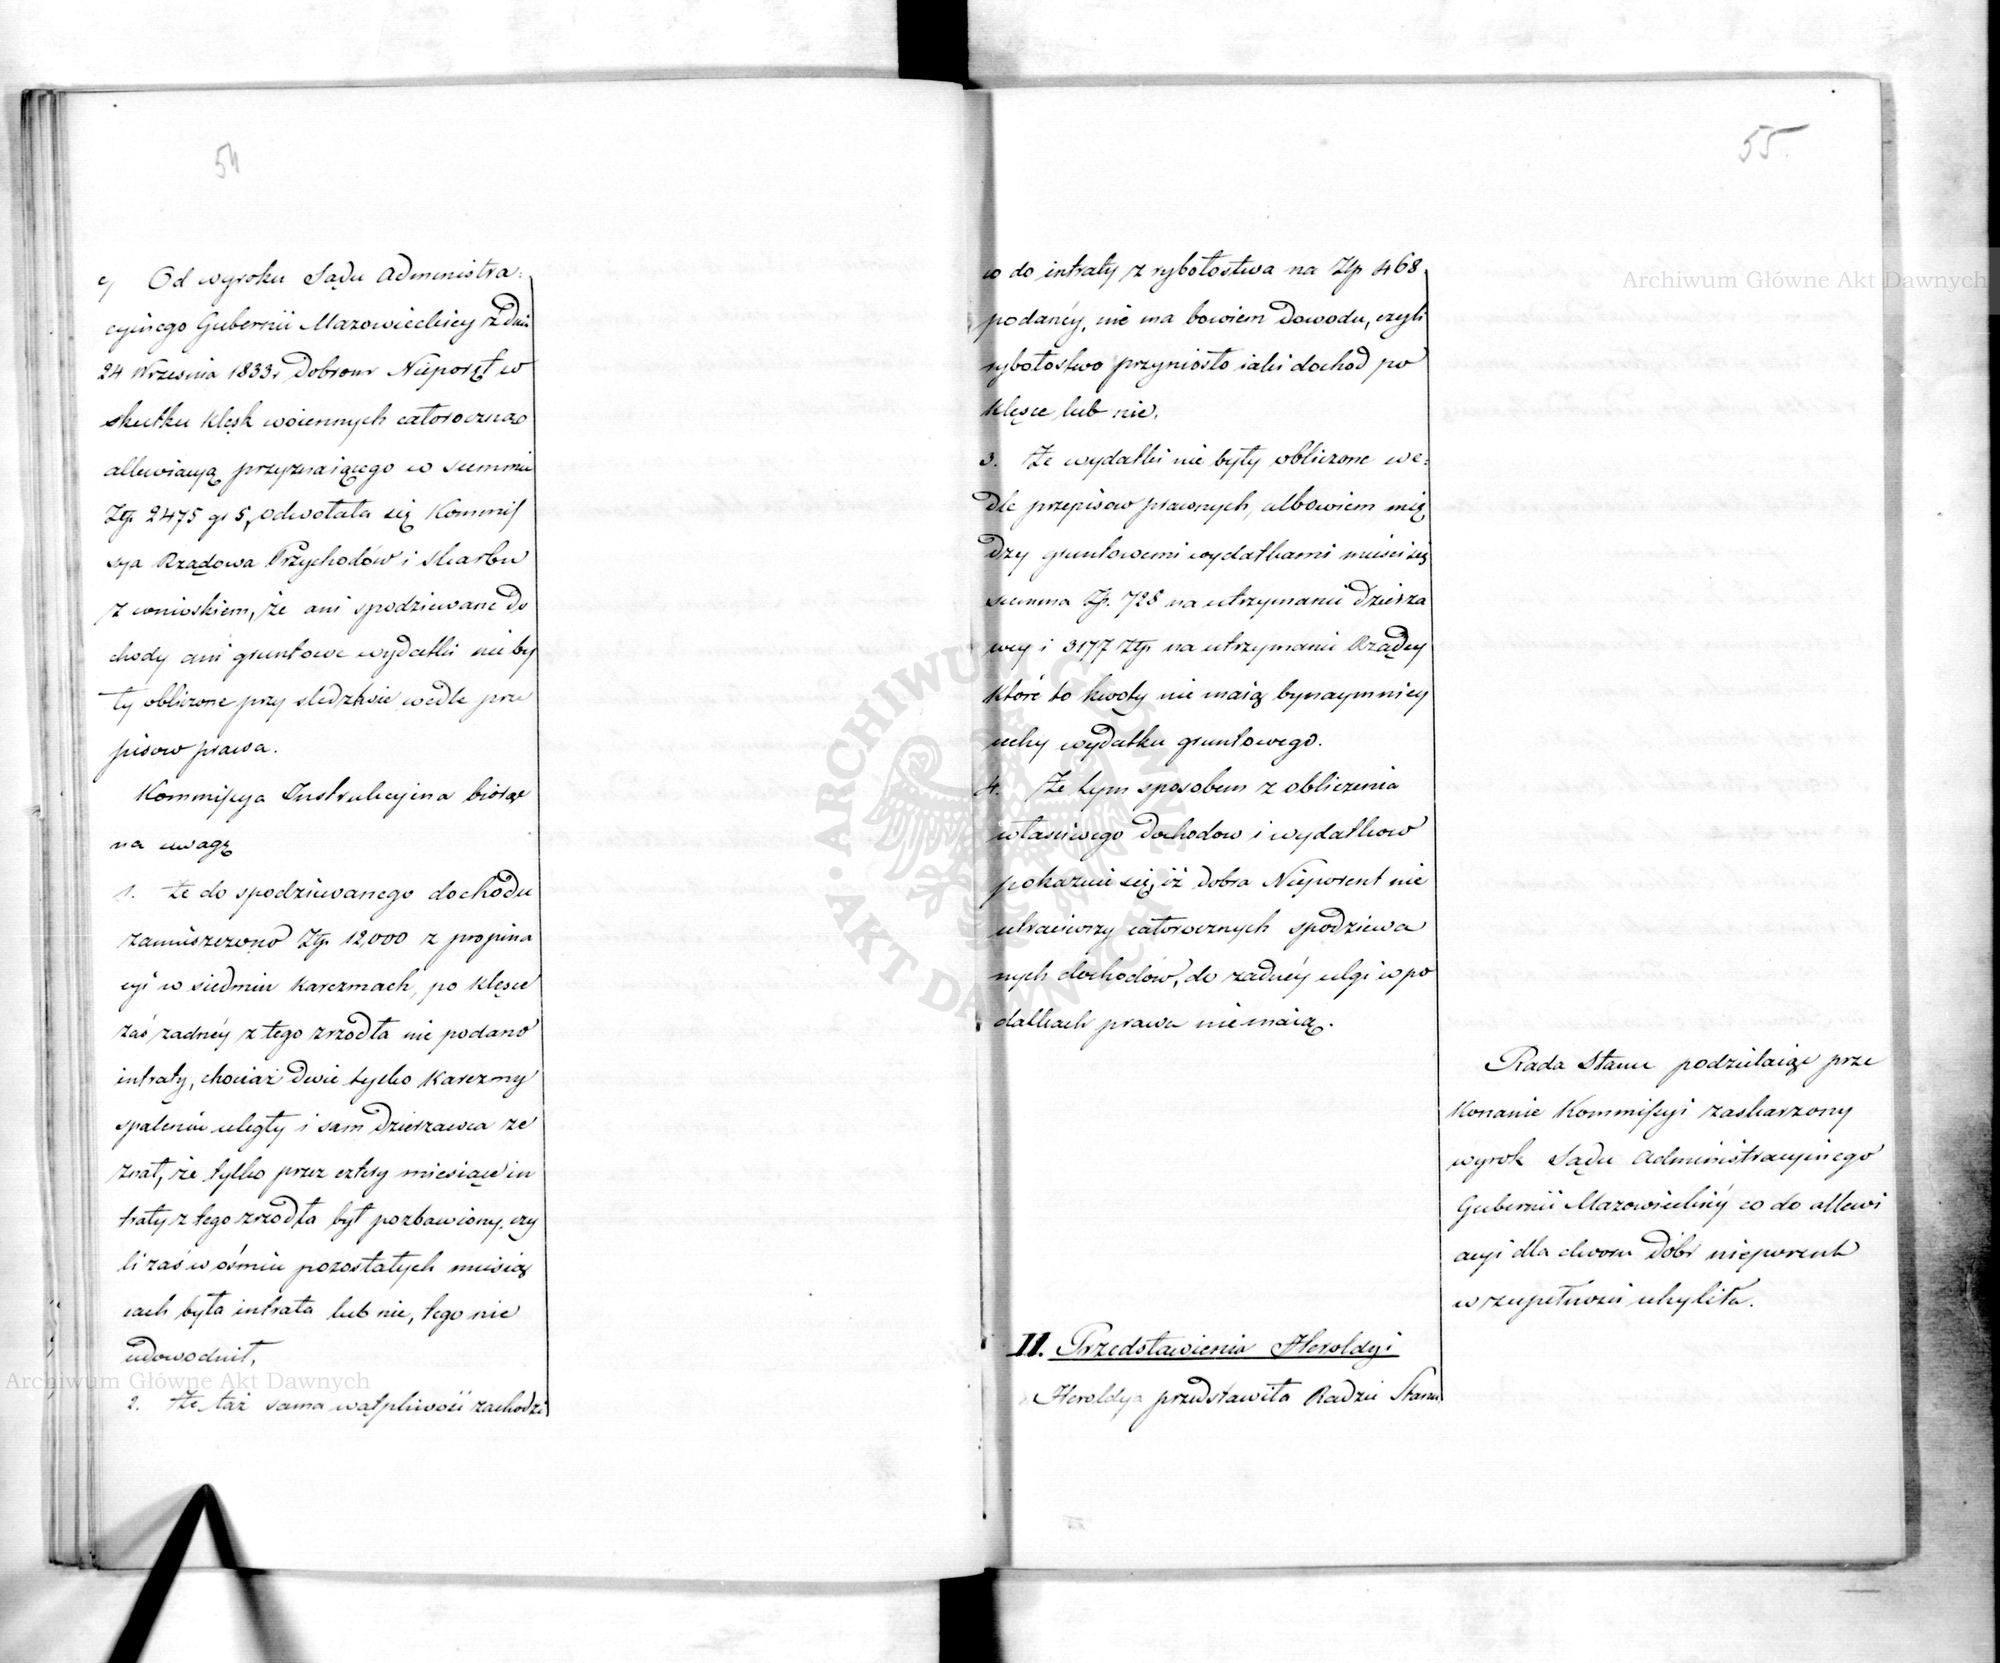 54
c/ Od wyroku Sądu Administra:
cyinego Gubernii Mazowieckiey z dnia
24 Września 1833 r Dobrom Nieporęt w
skutku klęsk woiennych całoroczną
allewiacyą przyznaiącego w summie
Złp. 2475 gr 5, odwołała się Kommis
sya Rządowa Przychodów i Skarbu
z wnioskiem, że ani spodziewane do
chody ani gruntowe wydatki nie by
ły obliczone przy śledztwie wedle prze
pisow prawa.
Kommissya Instrukcyina biorąc
na uwagę
1. Że do spodziewanego dochodu
zamieszczono Złp. 12,000 z propina
cyi w siedmiu karczmach, po klęsce
zaś żadnéy z tego zrzodła nie podano
intraty, chociaż dwie tylko karczmy
spaleniu uległy i sam Dzierzawca ze
znał, że tylko przez cztery miesiące in
traty z tego zrzodła był pozbawiony, czy
li zaś w ośmiu pozostałych miesią
cach była intrata lub nie, tego nie
udowodnił,
2. Że taż sama wątpliwość zachodzi
55.
co do intraty z rybołostwa na Złp 468
podanéy, nie ma bowiem dowodu, czyli
rybołostwo przyniosło iaki dochod po
klęsce lub nie,
3. Że wydatki nie były obliczone we:
dle przepisow prawnych, albowiem mię
dzy gruntowemi wydatkami mieści się
summa Zp. 728 na utrzymanie Dzierza
wcy i 3177 Złp. na utrzymanie Rządcy
które to kwoty nie maią bynaymniey
cechy wydatku gruntowego.
4. Że tym sposobem z obliczenia
właściwego dochodow i wydatkow
pokazuie się, iż dobra Nieporent nie
utraciwszy całorocznych spodziewa
nych dochodów, do żadnéy ulgi w po
datkach prawa nie maią.
Rada Stanu podzielaiąc prze
konanie Kommissyi zaskarzony
wyrok Sądu Administracyinego
Gubernii Mazowieckiéy co do allewi
acyi dla dworu dóbr nieporent
w zupełności uchyliła.
II. Przedstawienia Heroldyi
Heroldya przedstawiła Radzie Stanu
Archiwum Główne Akt Dawnych
Archiwum Główne Akt Dawnych
ARCHIWUM GŁÓWNE AKT DAWNYCH